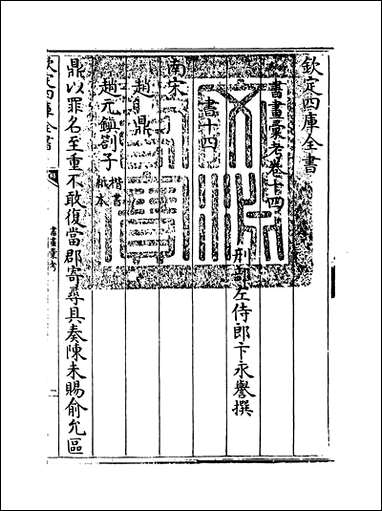 欽定四庫全書
書畫彙考卷十四
刑部左侍郎卞永譽撰
書十四
南宋
趙鼎
趙元鎮劄子
楷書
紙本
鼎以罪名至重不敢復當郡寄尋具奏陳未賜俞允區
欽定四庫全書
書畫彙考